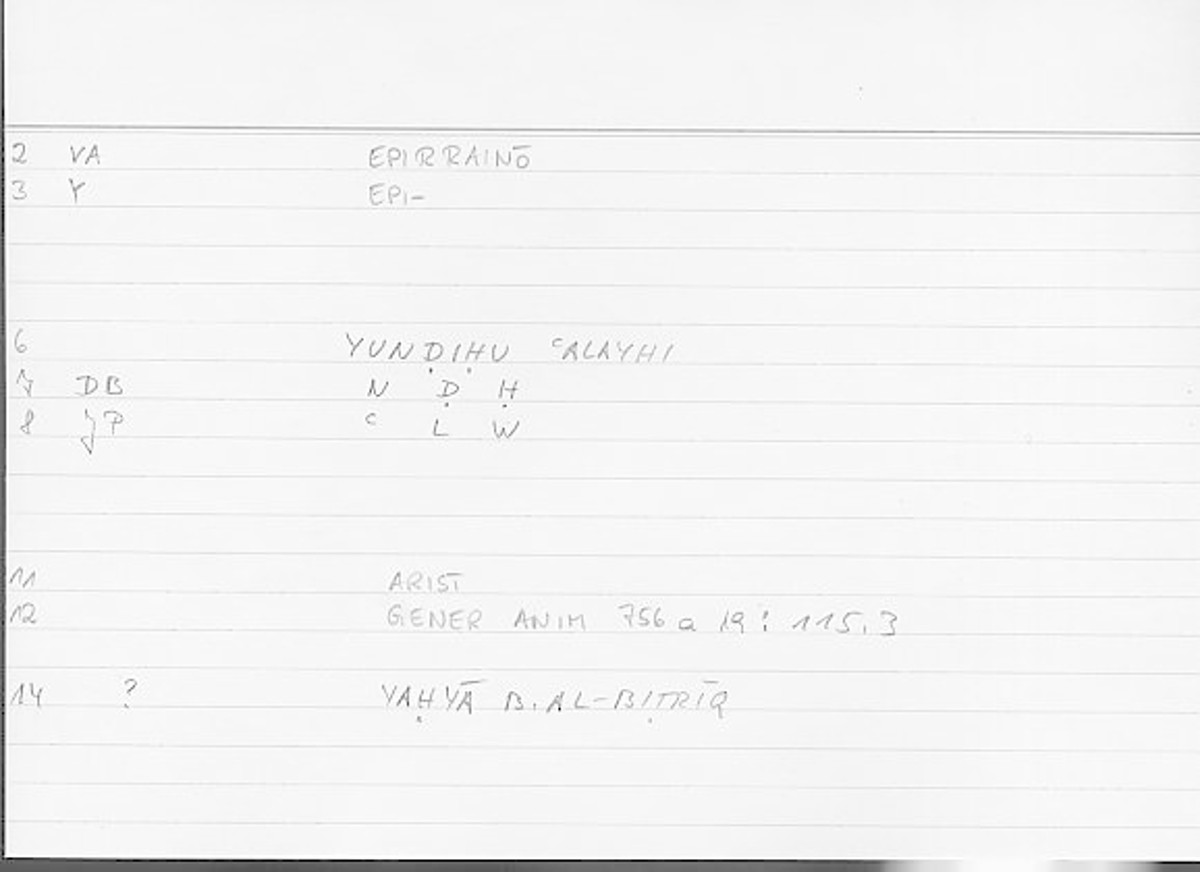 2 VA EPIRRAINŌ
3 Y EPI-
6 YUNḌIḤU ᶜALAYHI
7 DB N Ḍ Ḥ
8 JP ᶜ L W
11 ARIST
12 GENER ANIM 756 a 19 : 115.3
14 ? YAḤYĀ B. AL-BIṬRĪQ